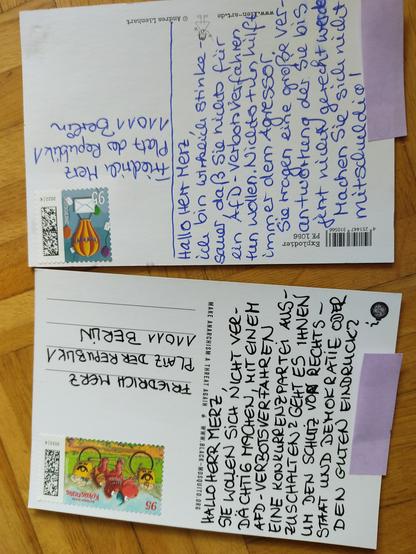 Hallo Herr Merz,
ich bin wirklich stinke-
sauer, daß Sie nichts für
ein AfD-Verbotsverfahren
tun wollen. Nichtstun hilft
immer dem Agressor.
Sie tragen eine große Ver-
antwortung, der Sie bis
jetzt nicht gerecht werden
Machen Sie sich nicht
mitschuldig!
Friedrich Merz
Platz der Republik 1
11011 Berlin
95
© Andrea Lienhart
www.lien-art.de
Explodier
PE 1056
HALLO HERR MERZ,
SIE WOLLEN SICH NICHT VER-
DÄCHTIG MACHEN, MIT EINEM
AFD-VERBOTSVERFAHREN
EINE KONKURRENZPARTEI AUS-
ZUSCHALTEN? GEHT ES IHNEN
UM DEN SCHUTZ VON RECHTS-
STAAT UND DEMOKRATIE ODER
DEN GUTEN EINDRUCK?
MAKE ANARCHISM A THREAT AGAIN
WWW.BLACK-MOSQUITO.ORG
FRIEDRICH MERZ
PLATZ DER REPUBLIK 1
11011 BERLIN
95